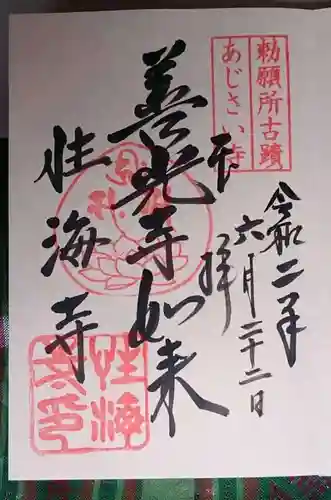 勅願所古蹟
あじさい寺
奉拝
令和二年
六月二十二日
善光寺如来
性海寺